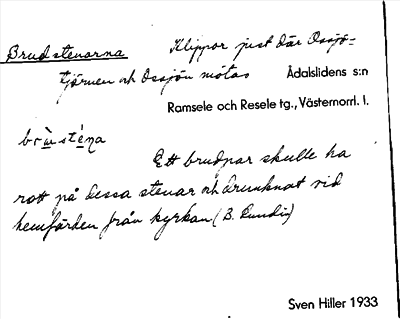 Brudstenarna Klippor just där Ossjö=
tjärnen och Ossjön mötas Ådalslidens s:n
Ramsele och Resele tg., Västernorrl. l.
Ett brudpar skulle ha
rott på dessa stenar och drunknat vid
hemfärden från kyrkan (B. Rundin)
Sven Hiller 1933